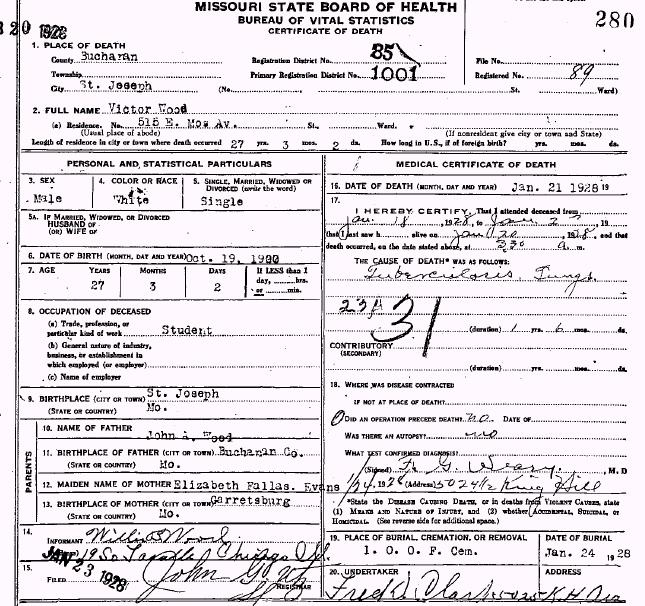 MISSOURI STATE BOARD OF HEALTH
BUREAU OF VITAL STATISTICS
CERTIFICATE OF DEATH
280
1928
1. PLACE OF DEATH
County Buchanan
Registration District No. 85
File No.
Township
Primary Registration District No. 1001
Registered No. 89
City St. Joseph (No. St. Ward)
2. FULL NAME Victor Wood
(a) Residence. No. 515 E. Mos Av. St., Ward.
(Usual place of abode) (If nonresident give city or town and State)
Length of residence in city or town where death occurred 27 yrs. 3 mos. 2 ds. How long in U.S., if of foreign birth? yrs. mos. ds.
PERSONAL AND STATISTICAL PARTICULARS
3. SEX
Male
4. COLOR OR RACE
White
5. SINGLE, MARRIED, WIDOWED OR
DIVORCED (write the word)
Single
5A. IF MARRIED, WIDOWED, OR DIVORCED
HUSBAND OF
(OR) WIFE OF
6. DATE OF BIRTH (MONTH, DAY AND YEAR) Oct. 19, 1900
7. AGE YEARS MONTHS DAYS If LESS than 1
day, hrs.
or min.
27 3 2
8. OCCUPATION OF DECEASED
(a) Trade, profession, or
particular kind of work Student
(b) General nature of industry,
business, or establishment in
which employed (or employer)
(c) Name of employer
9. BIRTHPLACE (CITY OR TOWN) St. Joseph
(STATE OR COUNTRY) Mo.
PARENTS
10. NAME OF FATHER
John A. Wood
11. BIRTHPLACE OF FATHER (CITY OR TOWN) Buchanan Co.
(STATE OR COUNTRY) Mo.
12. MAIDEN NAME OF MOTHER Elizabeth Fallas. Evans
13. BIRTHPLACE OF MOTHER (CITY OR TOWN) Garretsburg
(STATE OR COUNTRY) Mo.
14.
INFORMANT Wood
Chicago Ill
15.
FILED JAN 23 1928 John
REGISTRAR
MEDICAL CERTIFICATE OF DEATH
16. DATE OF DEATH (MONTH, DAY AND YEAR) Jan. 21 1928 19
17.
I HEREBY CERTIFY, That I attended deceased from
Jan. 18, 1928, to Jan. 23, 19
that I last saw h alive on Jan 20, 1928, and that
death occurred, on the date stated above, at 230 a. m.
THE CAUSE OF DEATH* WAS AS FOLLOWS:
Tuberculosis, Lungs
23A 31
(duration) 1 yrs. 6 mos. ds.
CONTRIBUTORY
(SECONDARY)
(duration) yrs. mos. ds.
18. WHERE WAS DISEASE CONTRACTED
IF NOT AT PLACE OF DEATH?
DID AN OPERATION PRECEDE DEATH? no DATE OF
WAS THERE AN AUTOPSY? no
WHAT TEST CONFIRMED DIAGNOSIS?
(Signed) G. , M. D
1/24, 1928 (Address) 5024½ King Hill
*State the DISEASE CAUSING DEATH, or in deaths from VIOLENT CAUSES, state
(1) MEANS AND NATURE OF INJURY, and (2) whether ACCIDENTAL, SUICIDAL, or
HOMICIDAL. (See reverse side for additional space.)
19. PLACE OF BURIAL, CREMATION, OR REMOVAL
I. O. O. F Cem.
DATE OF BURIAL
Jan. 24 1928
20. UNDERTAKER
ADDRESS
Fred Clark K.H Ave